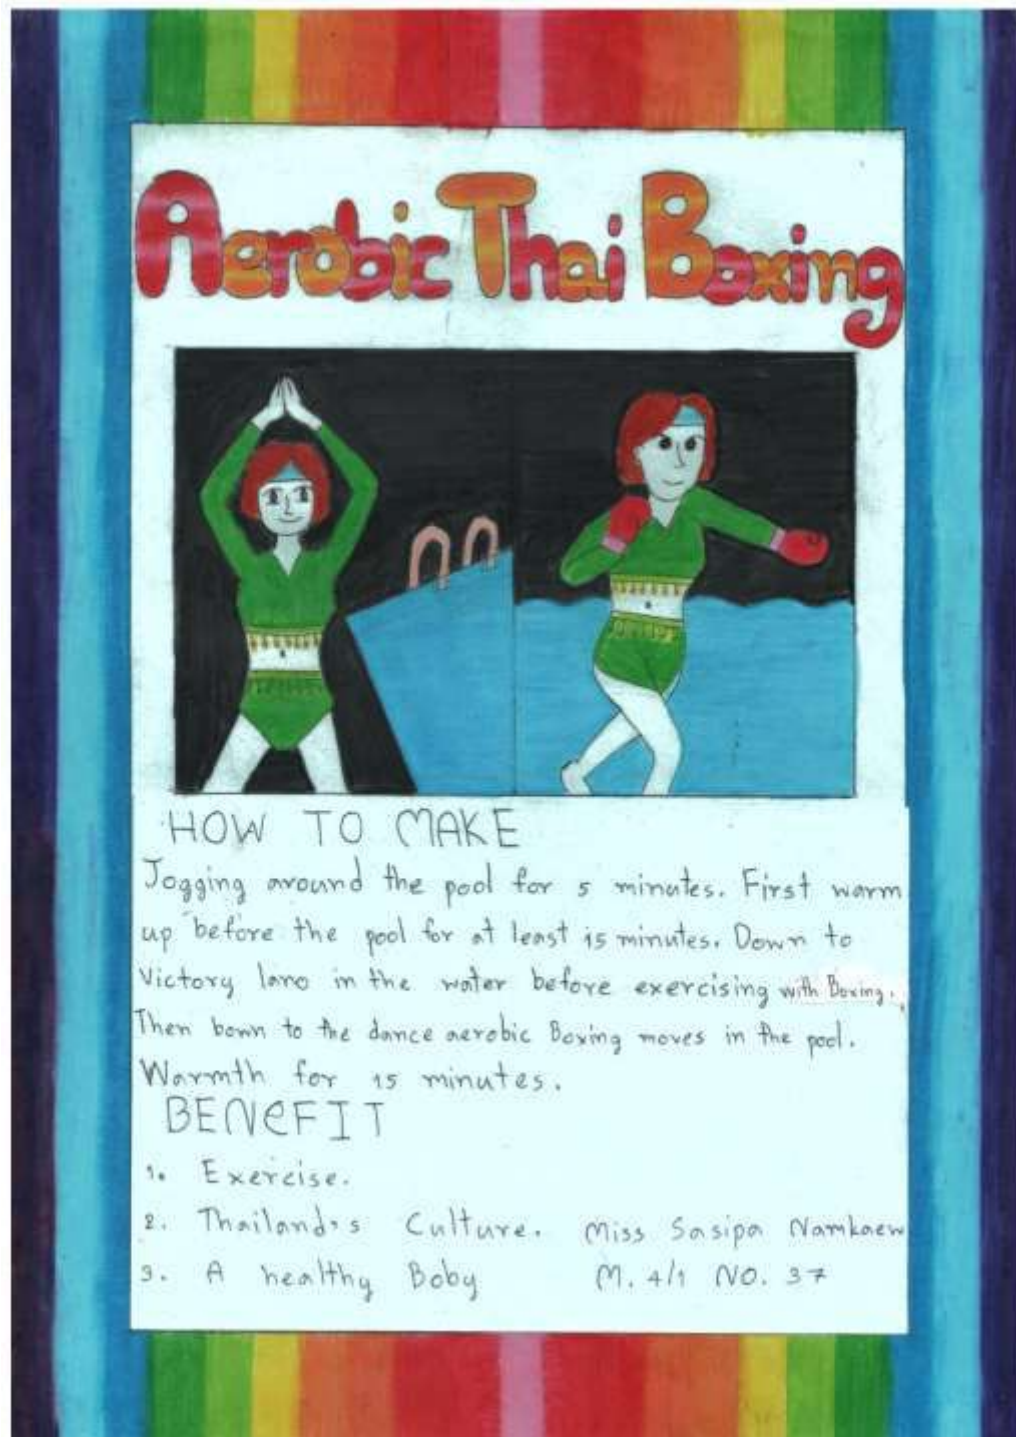 Aerobic Thai Boxing
HOW TO MAKE
Jogging around the pool for 5 minutes. First warm
up before the pool for at least 15 minutes. Down to
Victory lano in the water before exercising with Boxing.
Then bown to the dance aerobic Boxing moves in the pool.
Warmth for 15 minutes.
BENEFIT
1. Exercise.
2. Thailand's Culture. Miss Sasipa Namkaew
3. A healthy Boby M. 4/1 NO. 37